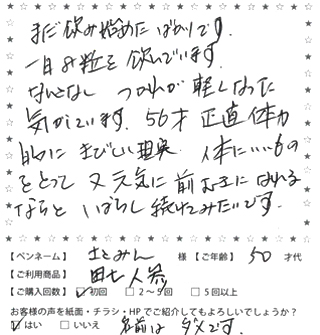 まだ飲み始めたばかりです。
一日8粒を飲んでいます。
なんとなしつかれが軽くなった
気がしています。56才正直体力
的にきびしい現実 体にいいもの
をとって又元気に前むきになれる
ならと 続けてみたいです。
【ペンネーム】 さとみん 様 【ご年齢】 50 才代
【ご利用商品】 田七人参
【ご購入回数】 ☑初回 □2~5回 □5回以上
お客様の声を紙面・チラシ・HPでご紹介してもよろしいでしょうか?
☑はい □いいえ 名前はダメです。